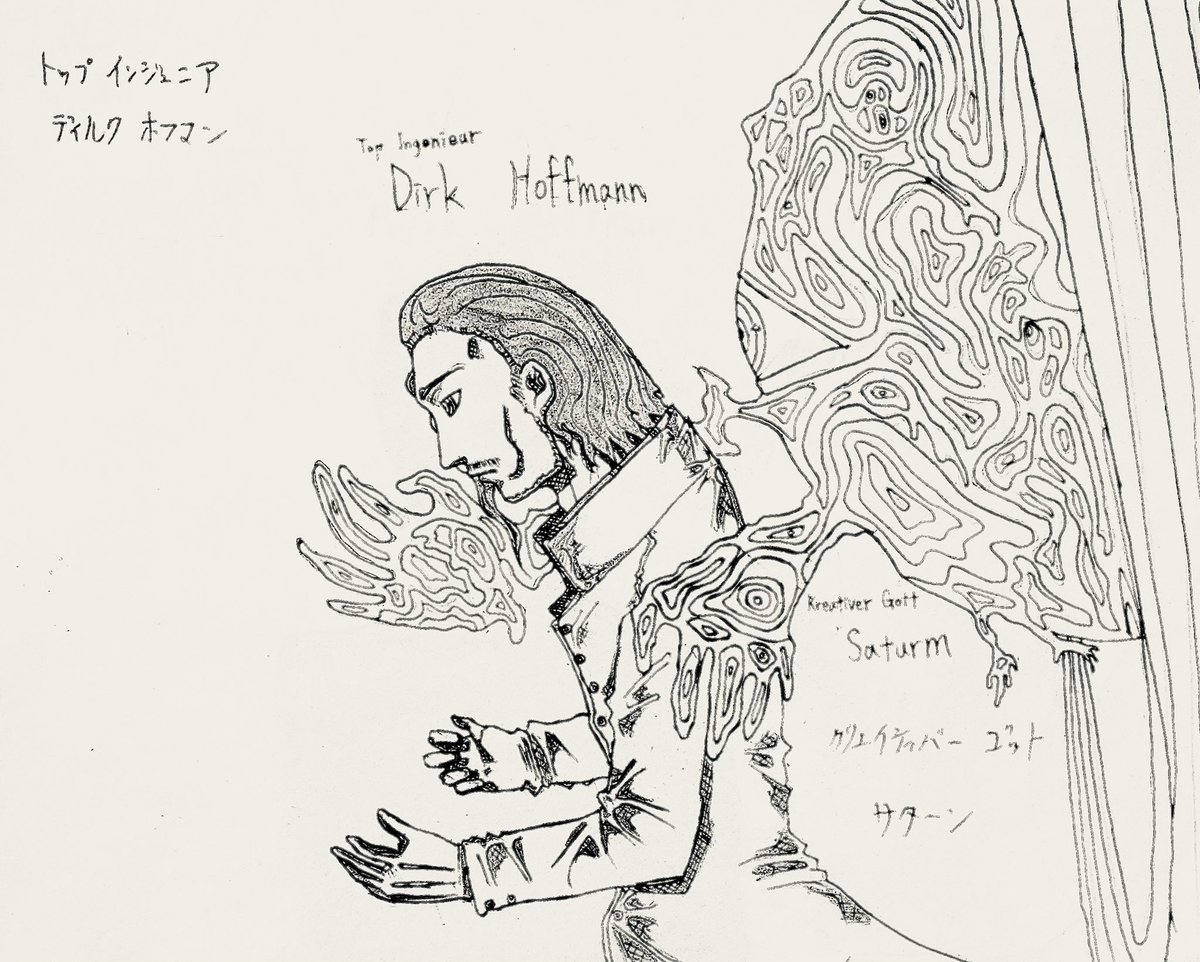 トップ インジェニア
ディルク ホフマン
Top Ingenieur
Dirk Hoffmann
Kreativer Gott
Saturm
クリエイティバー ゴット
サターン